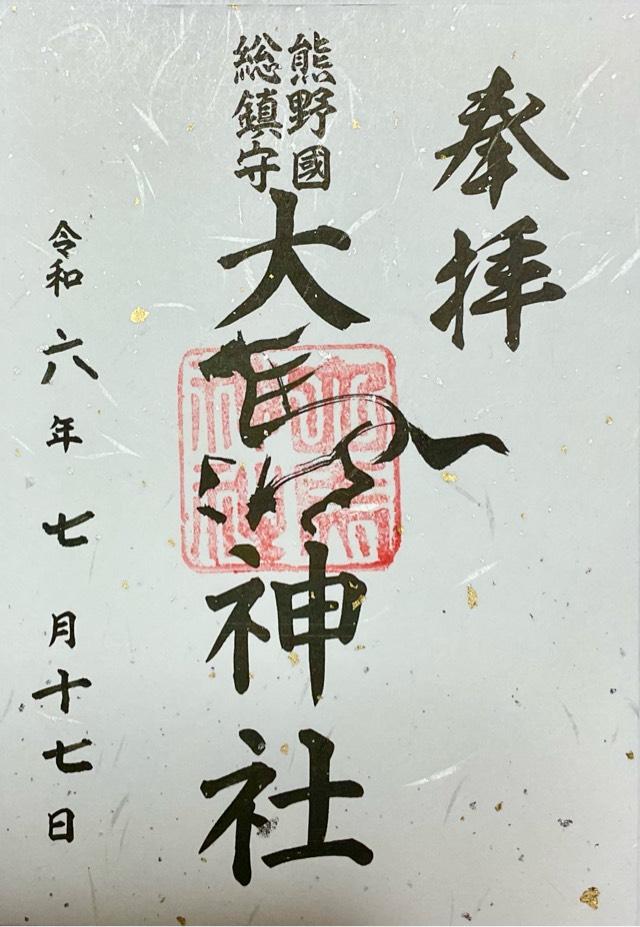 奉拝
熊野國
総鎮守
大馬神社
令和六年七月十七日